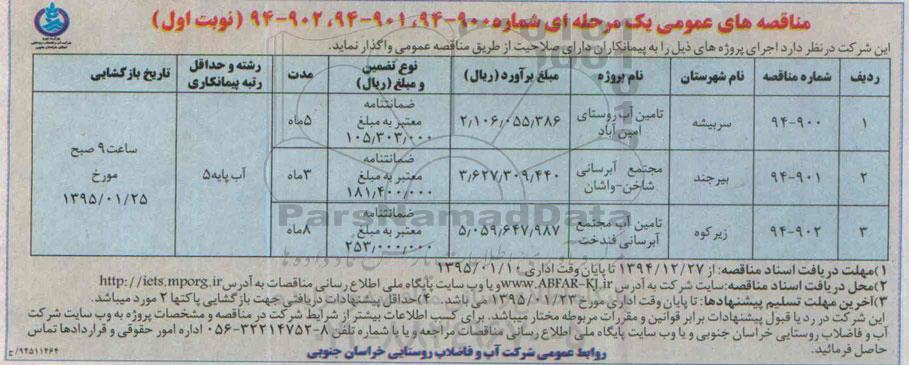 مناقصه های عمومی یک مرحله ای شماره ۹۰۰-۹۴، ۹۰۱-۹۴، ۹۰۲-۹۴ (نوبت اول)
این شرکت در نظر دارد اجرای پروژه های ذیل را به پیمانکاران دارای صلاحیت از طریق مناقصه عمومی واگذار نماید.
ردیف شماره مناقصه نام شهرستان نام پروژه مبلغ برآورد (ریال) نوع تضمین و مبلغ (ریال) مدت رشته و حداقل رتبه پیمانکاری تاریخ بازگشایی
۱ ۹۴-۹۰۰ سربیشه تامین آب روستای امین آباد ۲/۱۰۶/۰۵۵/۳۸۶ ضمانتنامه معتبر به مبلغ ۱۰۵/۳۰۳/۰۰۰ ۵ماه
۲ ۹۴-۹۰۱ بیرجند مجتمع آبرسانی شاخن-واشان ۳/۶۲۷/۳۰۹/۴۴۰ ضمانتنامه معتبر به مبلغ ۱۸۱/۴۰۰/۰۰۰ ۳ماه آب پایه۵ ساعت۹ صبح مورخ ۱۳۹۵/۰۱/۲۵
۳ ۹۴-۹۰۲ زیرکوه تامین آب مجتمع آبرسانی فندخت ۵/۰۵۹/۶۴۷/۹۸۷ ضمانتنامه معتبر به مبلغ ۲۵۳/۰۰۰/۰۰۰ ۸ماه
ParsNamadData
۱)مهلت دریافت اسناد مناقصه: از ۱۳۹۴/۱۲/۲۷ تا پایان وقت اداری ۱۳۹۵/۰۱/۱۰
۲)محل دریافت اسناد مناقصه:سایت شرکت به آدرس www.ABFAR-KJ.ir و یا وب سایت پایگاه ملی اطلاع رسانی مناقصات به آدرس http://iets.mporg.ir
۳)آخرین مهلت تسلیم پیشنهادها: تا پایان وقت اداری مورخ ۱۳۹۵/۰۱/۲۳ می باشد. ۴)حداقل پیشنهادات دریافتی جهت بازگشایی پاکتها ۲ مورد میباشد.
این شرکت در رد یا قبول پیشنهادات برابر قوانین و مقررات مربوطه مختار میباشد. برای کسب اطلاعات بیشتر از شرایط شرکت در مناقصه و مشخصات پروژه به وب سایت شرکت
آب و فاضلاب روستایی خراسان جنوبی و یا وب سایت پایگاه ملی اطلاع رسانی مناقصات مراجعه و یا با شماره تلفن ۸-۳۲۲۱۴۷۵۲-۰۵۶ اداره امور حقوقی و قراردادها تماس
حاصل فرمائید.
روابط عمومی شرکت آب و فاضلاب روستایی خراسان جنوبی
۹۴۵۱۱۴۶۴/ج